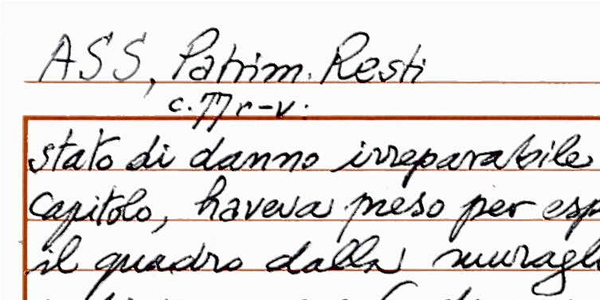 ASS, Patrim. Resti
c. 77r-v.
stato di danno irreparabile
Capitolo, haveva preso per esp
il quadro dalla muragli